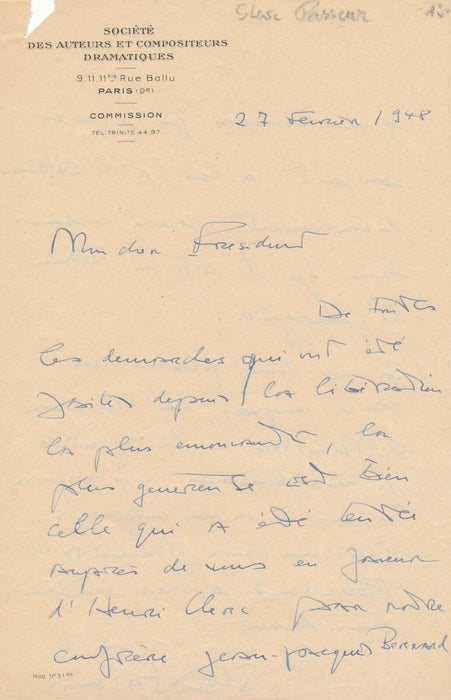 Steve Passeur
SOCIÉTÉ
DES AUTEURS ET COMPOSITEURS
DRAMATIQUES
9, 11, 11bis Rue Ballu
PARIS (9e)
COMMISSION
TÉL. TRINITÉ 44-97
27 Février 1948
Mon cher Président
De toutes
les démarches qui ont été
faites depuis la libération
la plus émouvante, la
plus généreuse c'est bien
celle qui a été tentée
auprès de vous en faveur
d'Henri Clerc par notre
confrère Jean-Jacques Bernard
Mod. N° 51